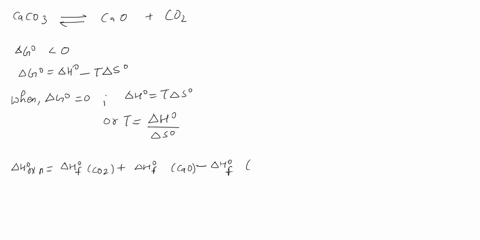 CaCO3 ⇌ CaO + CO2
ΔG⁰ < 0
ΔG⁰ = ΔH⁰ - TΔS⁰
when, ΔG⁰ = 0 ; ΔH⁰ = TΔS⁰
or T = ΔH⁰/ΔS⁰
ΔH⁰rxn = ΔH⁰f (CO2) + ΔH⁰f (CaO) - ΔH⁰f (